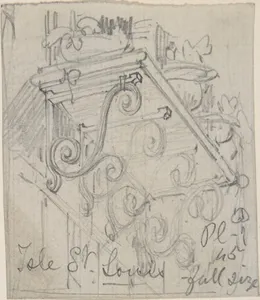 Isle St. Louis
Pl-
45
full size